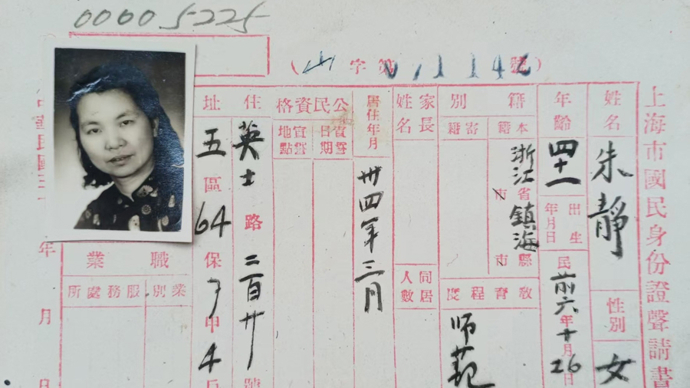 00005225
(山字第01142號)
上海市國民身份證聲請書
姓名 朱靜
性別 女
年齡 四十一
出生年月日 民前六年十月26日
籍別
本籍 浙江省市鎮海縣市
寄籍
教育程度 師範
家長姓名
同居人數
居住年月 卅四年三月
公民資格
宣誓日期
宣誓地點
住址 英士路二百廿號
五區64保 甲4戶
職業
業別
服務處所
年 月